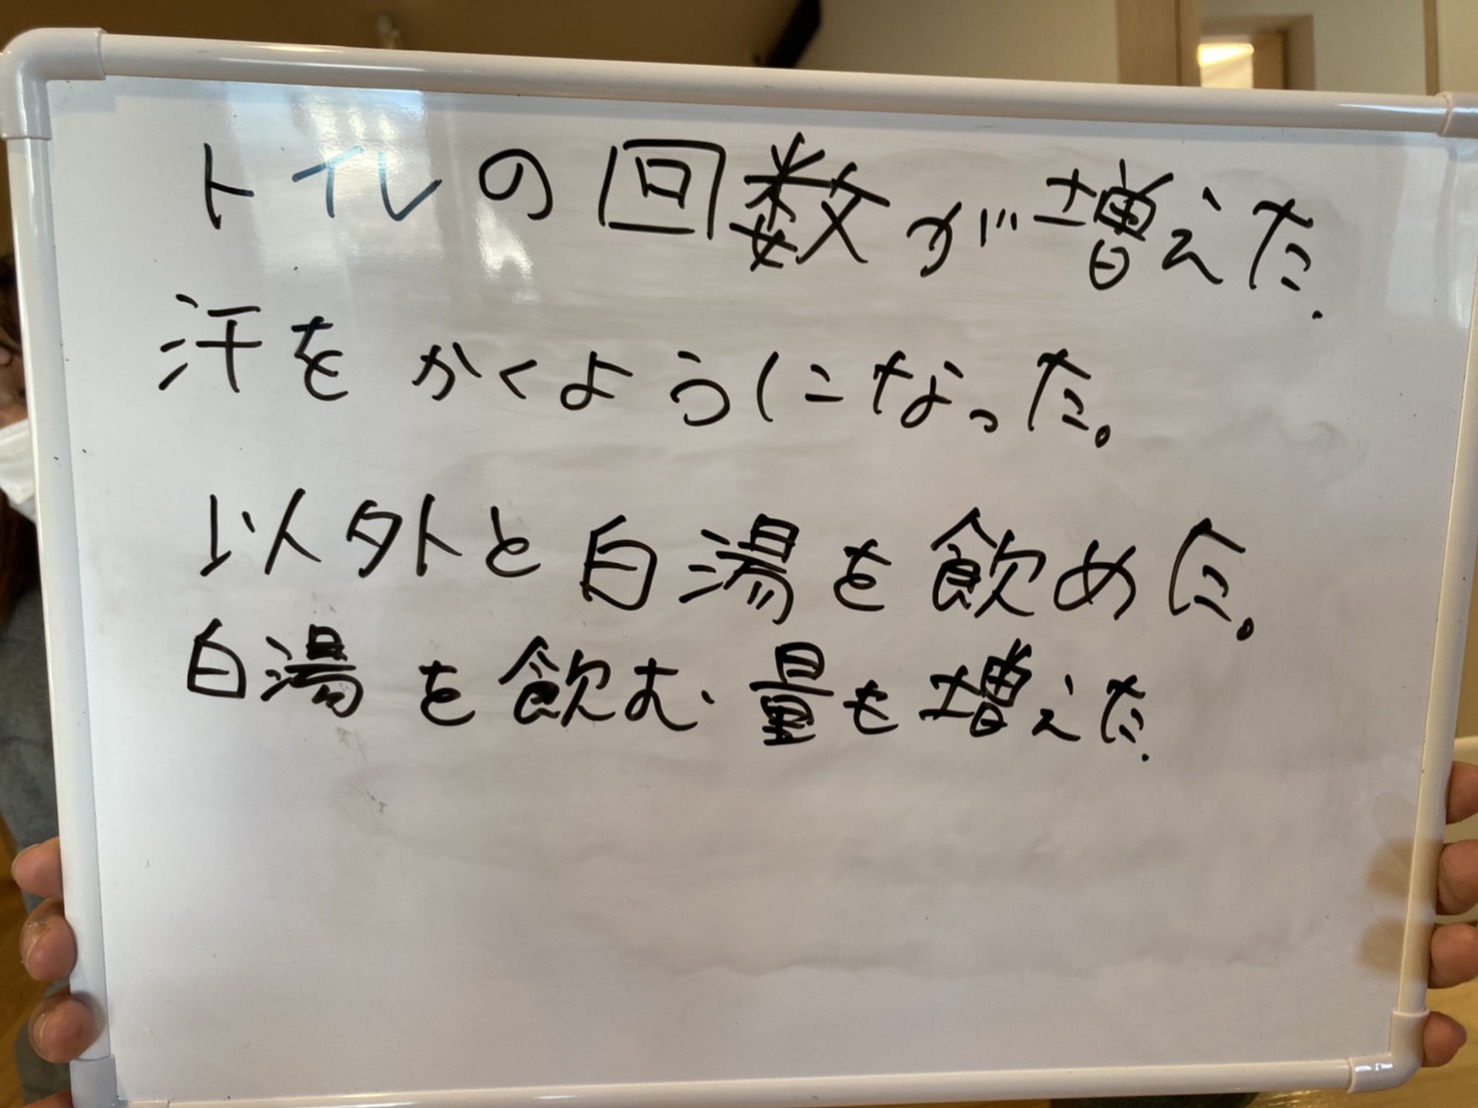 トイレの回数が増えた.
汗をかくようになった。
以外と白湯を飲めた。
白湯を飲む量も増えた.